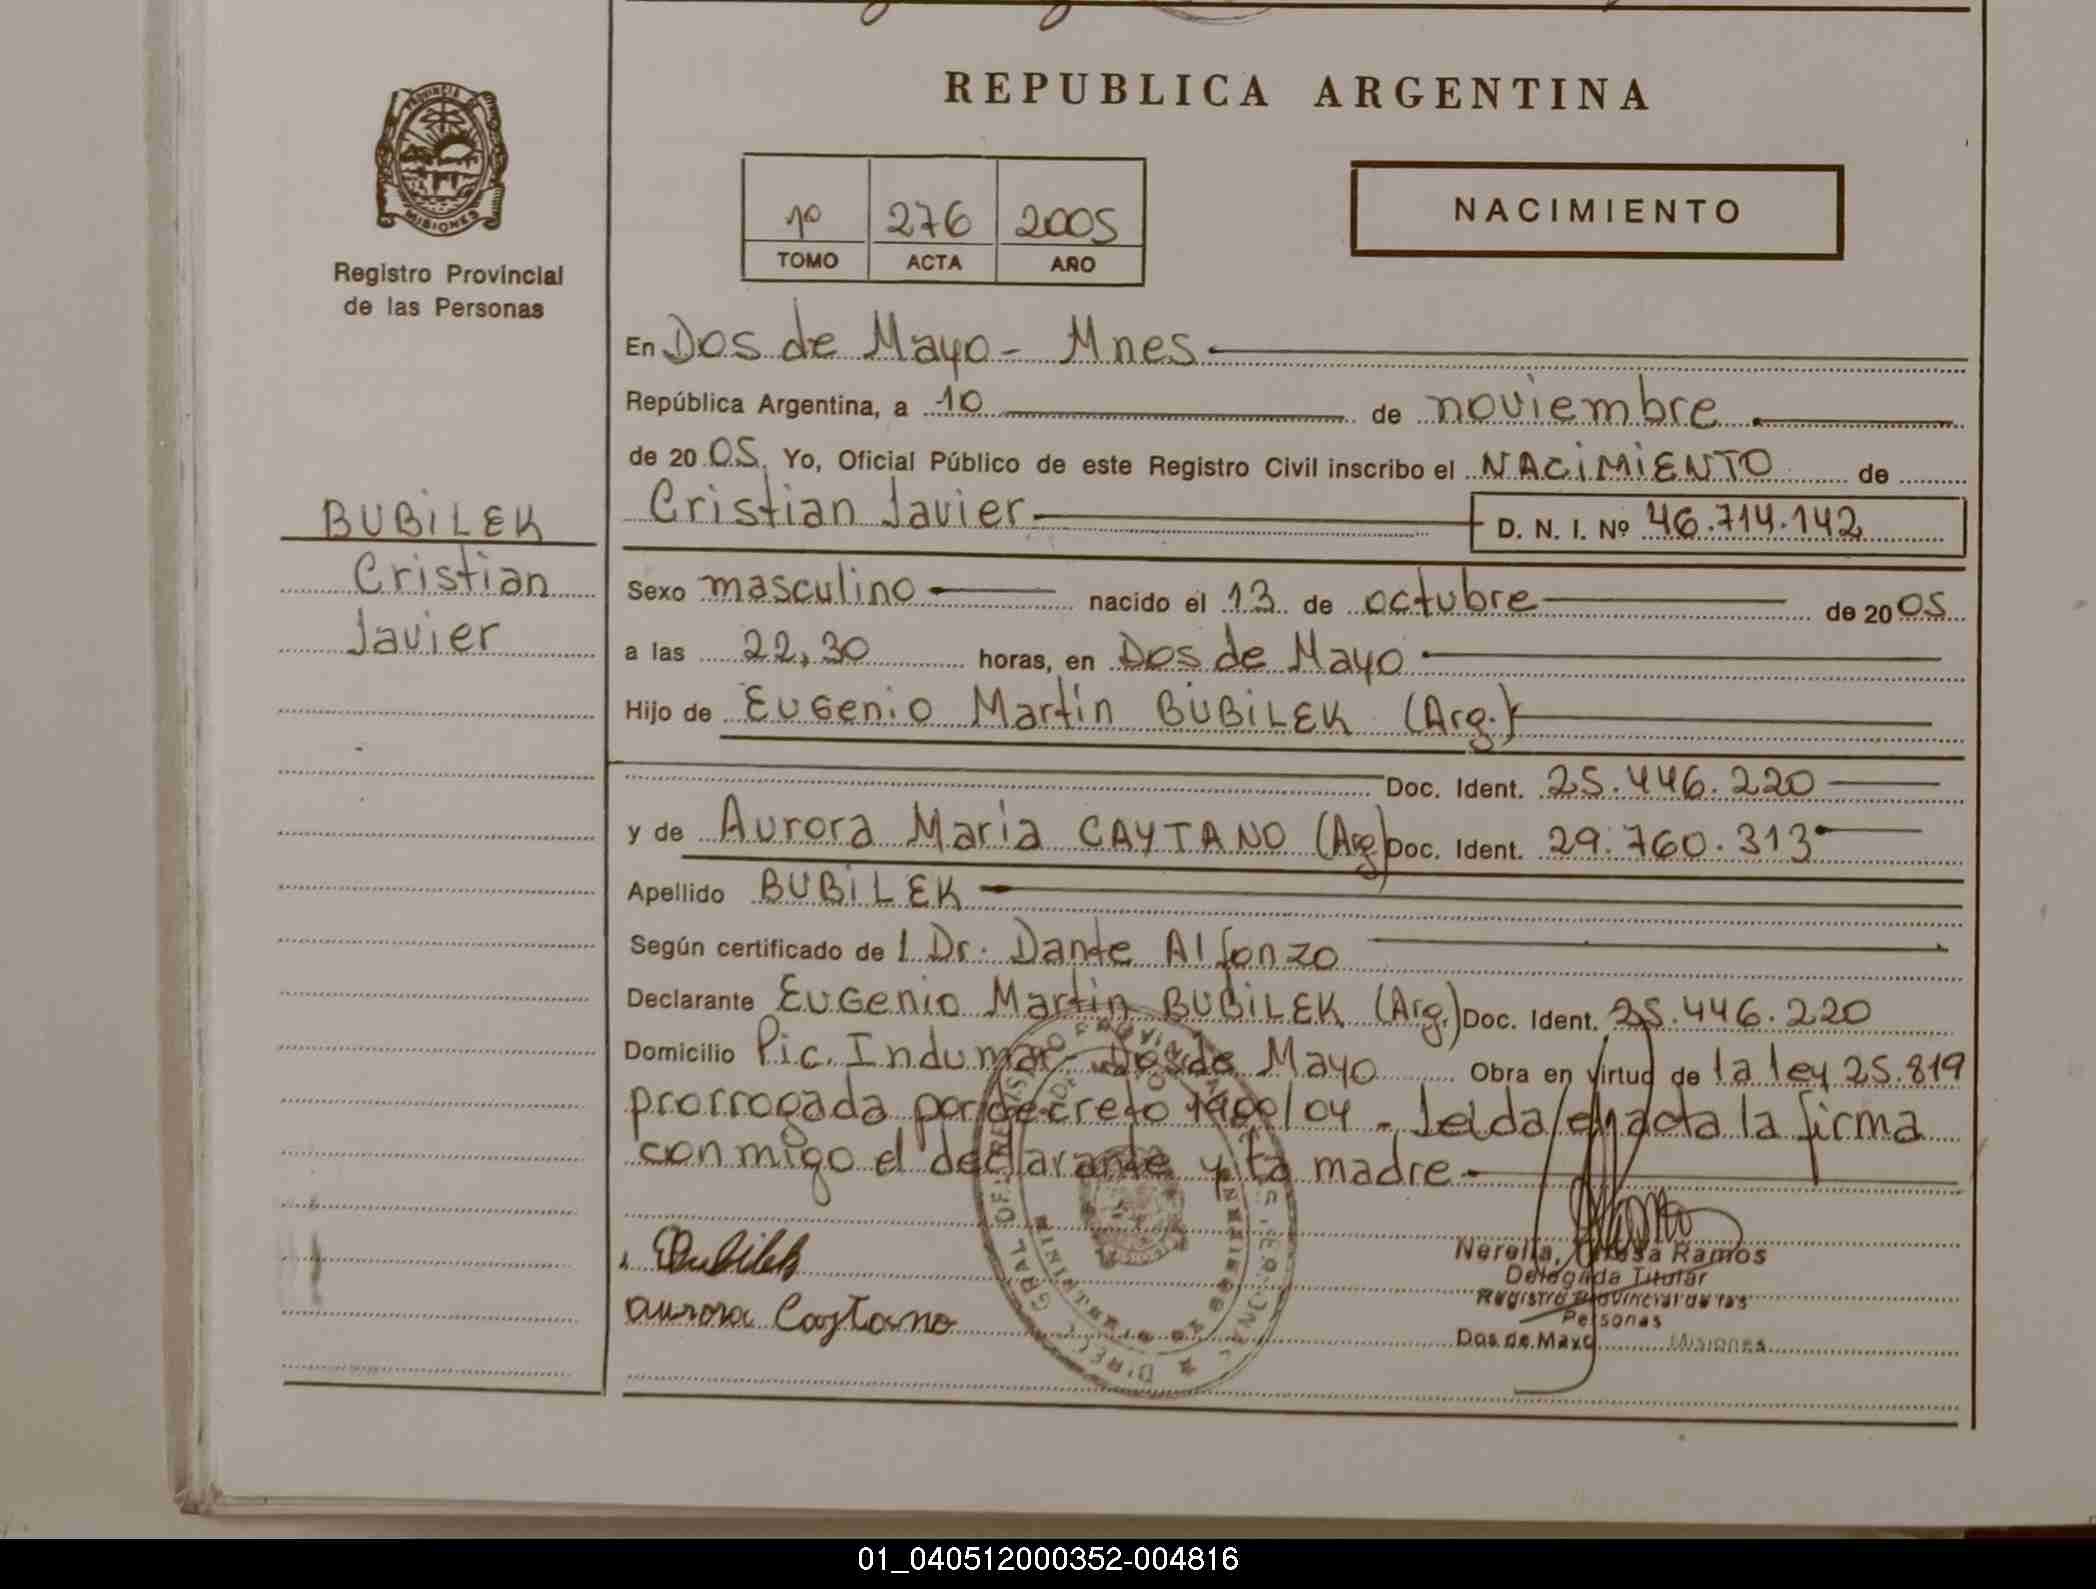 REPUBLICA ARGENTINA
PROVINCIA DE
MISIONES
Registro Provincial
de las Personas
1º 276 2005
TOMO ACTA AÑO
NACIMIENTO
En Dos de Mayo - Mnes
República Argentina, a 10 de noviembre
de 2005. Yo, Oficial Público de este Registro Civil inscribo el NACIMIENTO de
Cristian Javier D. N. I. Nº 46.714.142
BUBILEK
Cristian
Javier
Sexo masculino nacido el 13 de octubre de 2005
a las 22,30 horas, en Dos de Mayo
Hijo de Eugenio Martín BUBILEK (Arg.)
Doc. Ident. 25.446.220
y de Aurora María CAYTANO (Arg) Doc. Ident. 29.760.313
Apellido BUBILEK
Según certificado de l Dr. Dante Alfonzo
Declarante Eugenio Martín BUBILEK (Arg.) Doc. Ident. 25.446.220
Domicilio Pic. Indumar - Dos de Mayo Obra en virtud de la ley 25.819
prorrogada por decreto 1400/04 - Leída el acta la firma
conmigo el declarante y la madre
Bubilek
Aurora Caytano
Ramos
Delegada Titular
Registro Provincial de las
Personas
Dos de Mayo Misiones
01_040512000352-004816